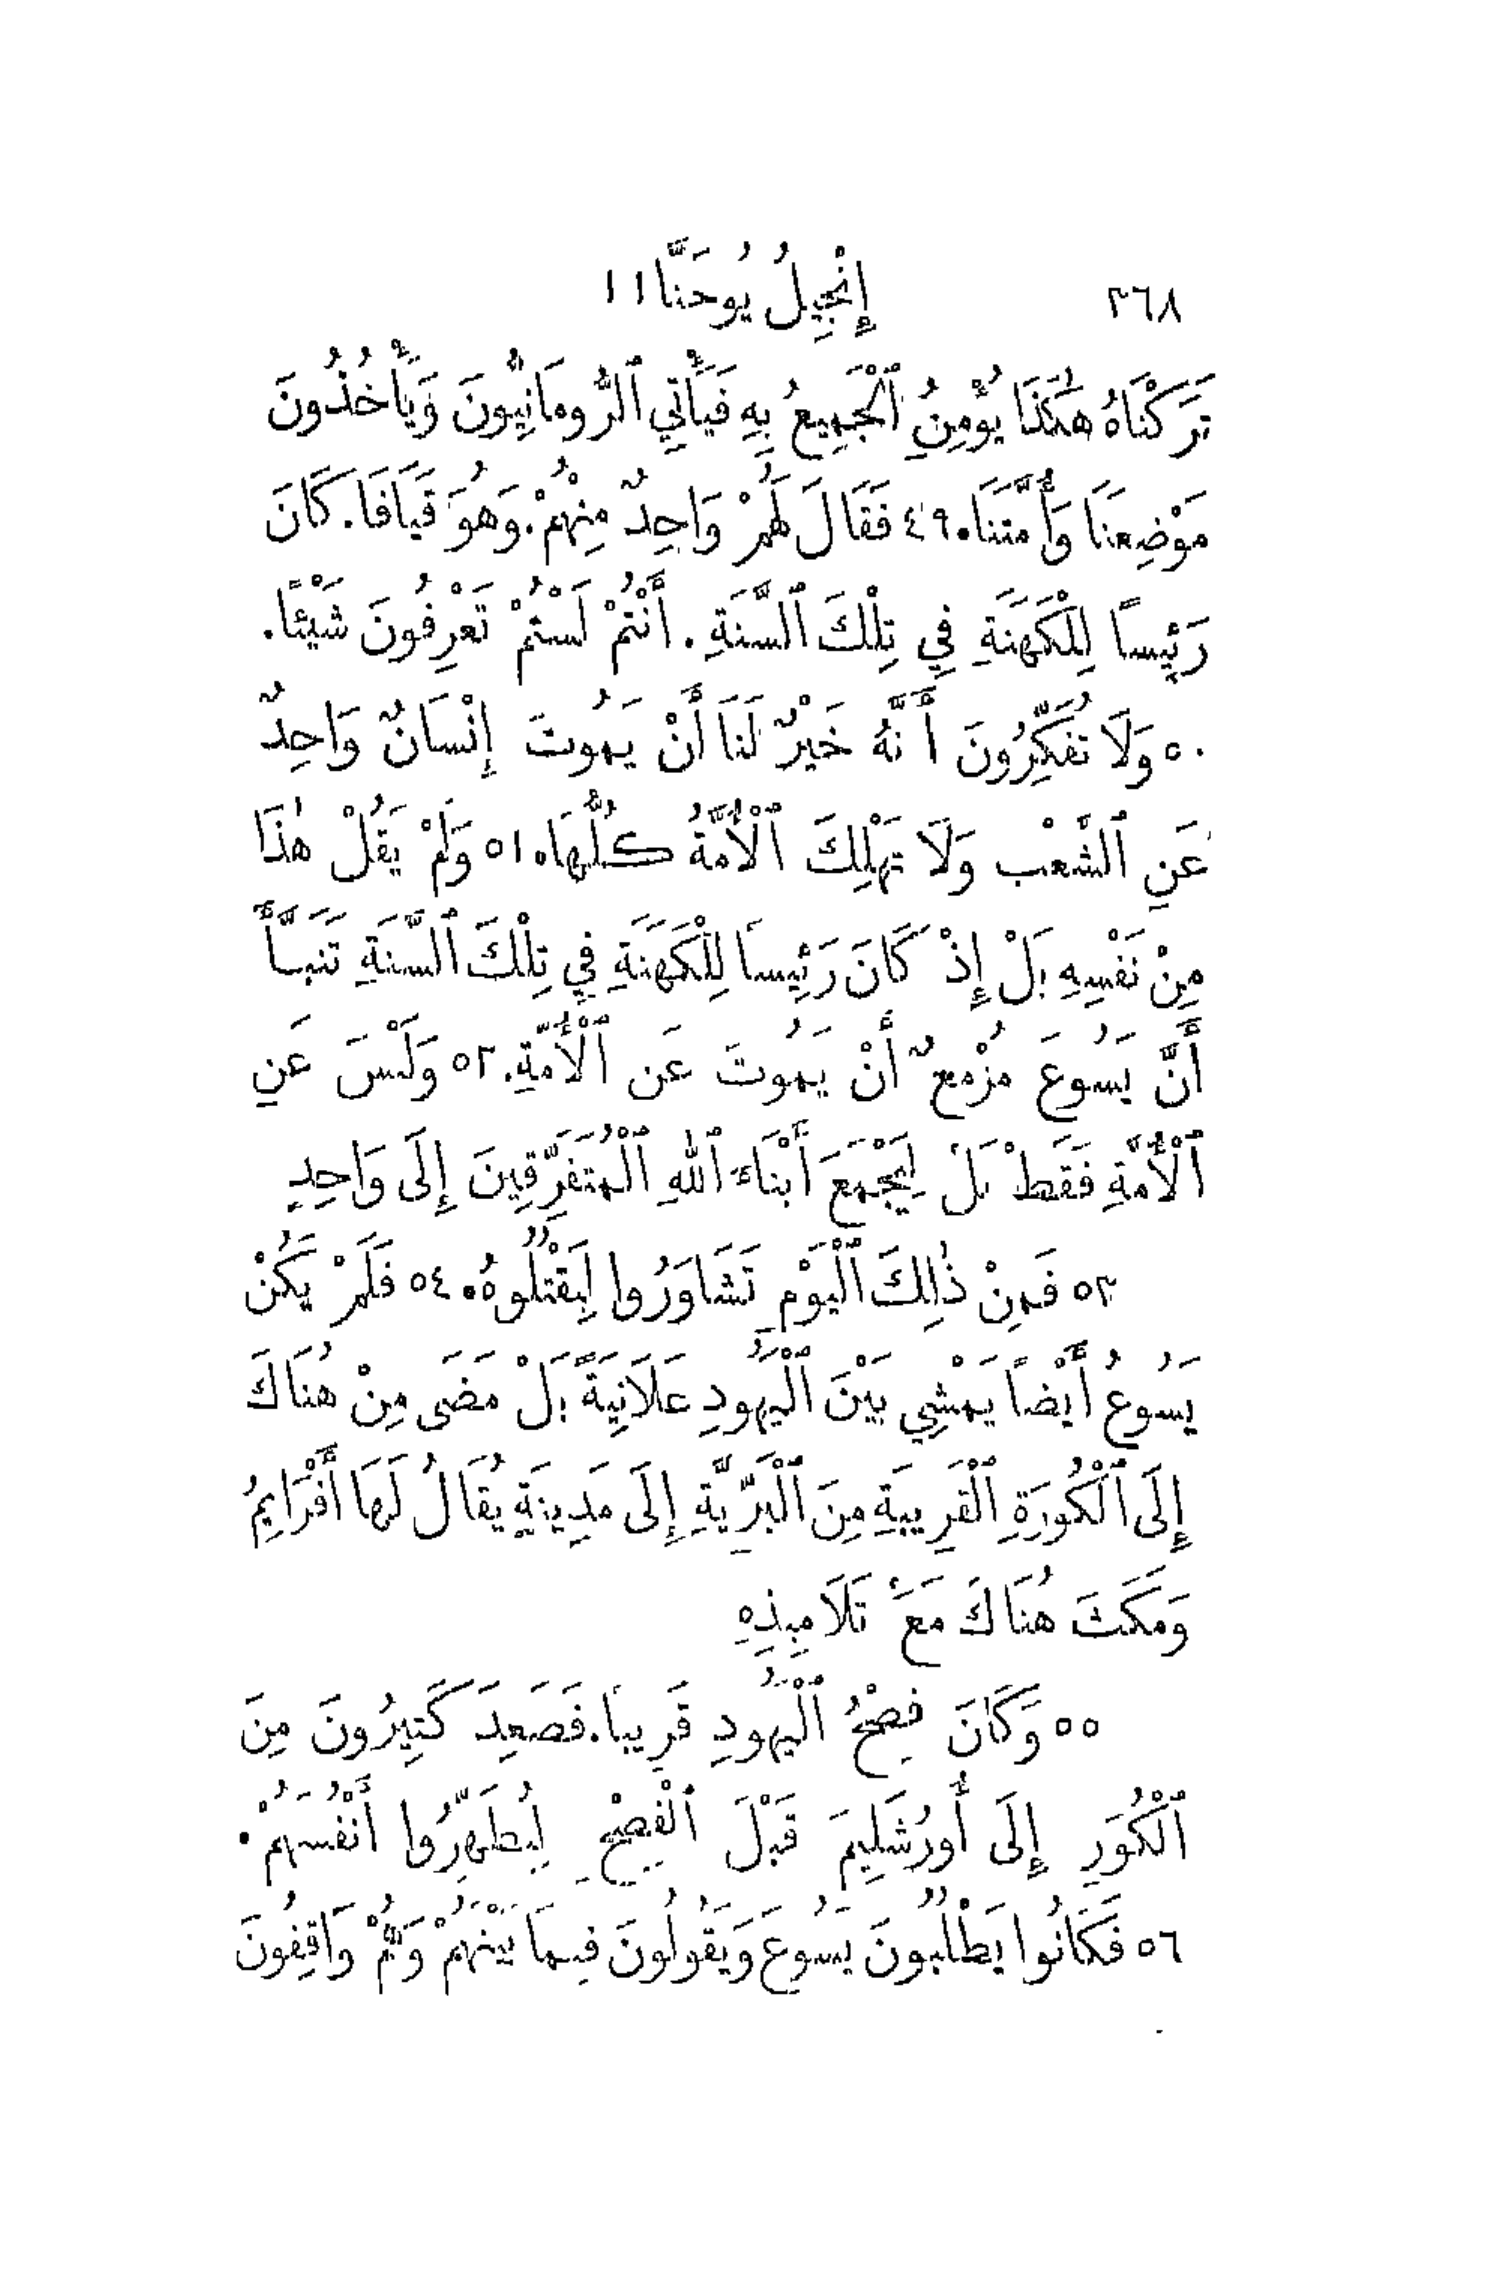 ٣٦٨ إِنْجِيلُ يُوحَنَّا ١١
تَرَكْنَاهُ هٰكَذَا يُؤْمِنُ ٱلْجَمِيعُ بِهِ فَيَأْتِي ٱلرُّومَانِيُّونَ وَيَأْخُذُونَ
مَوْضِعَنَا وَأُمَّتَنَا. ٤٩ فَقَالَ لَهُمْ وَاحِدٌ مِنْهُمْ. وَهُوَ قَيَافَا. كَانَ
رَئِيساً لِلْكَهَنَةِ فِي تِلْكَ ٱلسَّنَةِ. أَنْتُمْ لَسْتُمْ تَعْرِفُونَ شَيْئاً.
٥٠ وَلَا تُفَكِّرُونَ أَنَّهُ خَيْرٌ لَنَا أَنْ يَمُوتَ إِنْسَانٌ وَاحِدٌ
عَنِ ٱلشَّعْبِ وَلَا تَهْلِكَ ٱلْأُمَّةُ كُلُّهَا. ٥١ وَلَمْ يَقُلْ هٰذَا
مِنْ نَفْسِهِ بَلْ إِذْ كَانَ رَئِيساً لِلْكَهَنَةِ فِي تِلْكَ ٱلسَّنَةِ تَنَبَّأَ
أَنَّ يَسُوعَ مُزْمِعٌ أَنْ يَمُوتَ عَنِ ٱلْأُمَّةِ. ٥٢ وَلَيْسَ عَنِ
ٱلْأُمَّةِ فَقَطْ بَلْ لِيَجْمَعَ أَبْنَاءَ ٱللهِ ٱلْمُتَفَرِّقِينَ إِلَى وَاحِدٍ
٥٣ فَمِنْ ذٰلِكَ ٱلْيَوْمِ تَشَاوَرُوا لِيَقْتُلُوهُ. ٥٤ فَلَمْ يَكُنْ
يَسُوعُ أَيْضاً يَمْشِي بَيْنَ ٱلْيَهُودِ عَلَانِيَةً بَلْ مَضَى مِنْ هُنَاكَ
إِلَى ٱلْكُورَةِ ٱلْقَرِيبَةِ مِنَ ٱلْبَرِّيَّةِ إِلَى مَدِينَةٍ يُقَالُ لَهَا أَفْرَايِمُ
وَمَكَثَ هُنَاكَ مَعَ تَلَامِيذِهِ
٥٥ وَكَانَ فِصْحُ ٱلْيَهُودِ قَرِيباً. فَصَعِدَ كَثِيرُونَ مِنَ
ٱلْكُوَرِ إِلَى أُورُشَلِيمَ قَبْلَ ٱلْفِصْحِ لِيُطَهِّرُوا أَنْفُسَهُمْ.
٥٦ فَكَانُوا يَطْلُبُونَ يَسُوعَ وَيَقُولُونَ فِيمَا بَيْنَهُمْ وَهُمْ وَاقِفُونَ